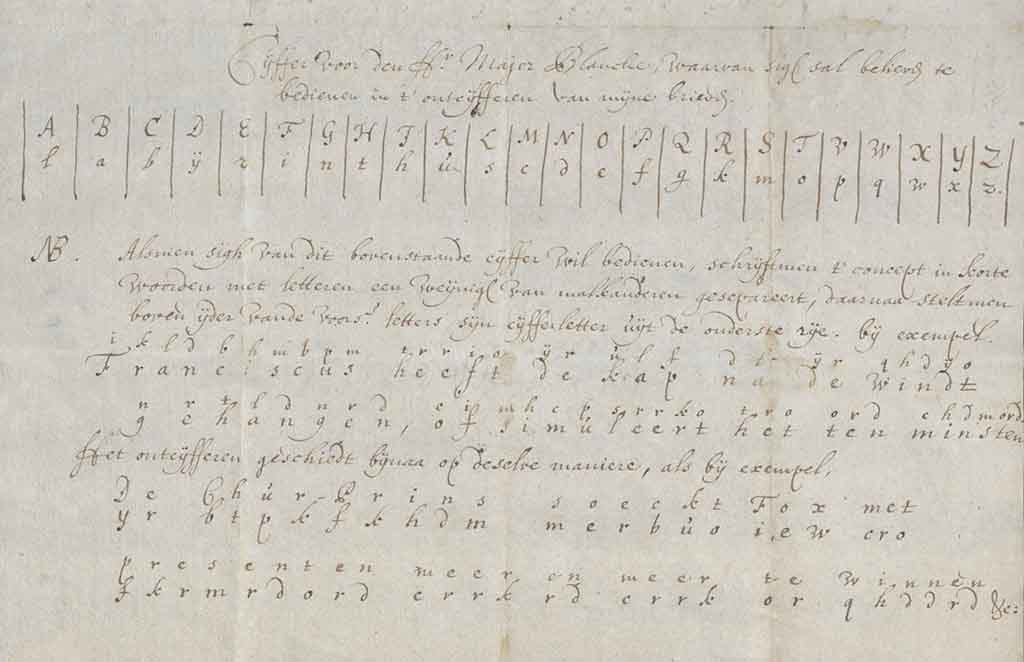 Cijffer voor den Hr. Major Blancke, waarvan sigh sal believ te
bedienen in 't ontcijfferen van mijne brieve.
A B C D E F G H I K L M N O P Q R S T V W X Y Z
l a b ÿ r i n t h ů s c d e f g k m o p q w x z.
NB. Alsmen sigh van dit bovenstaande cijffer wil bedienen, schrijftmen 't concept in korte
woorden met letteren een weijnigh van malkanderen gesepareert, daarnaa steltmen
boven ijder vande voors. letters sijn cijfferletter uijt de onderste rije. bij exempel.
i k l d b h m b p m t r r i o ÿ r ů l f d l ÿ r q h d ÿ o
F r a n c i s c u s h e e f t d e k a p n a d e w i n d t
n r t l d n r d e i m h c p s r r k o t r o o r d c h d m o r d
g e h a n g e n, o f s i m u l e e r t h e t t e n m i n s t e n
Het ontcijfferen geschiedt bijnaa op deselve maniere, als bij exempel,
D e C h u r - P r i n s s o e c k t F o x m e t
ÿ r b t p k f k h d m m e r b ů o i e w c r o
p r e s e n t e n m e e r e n m e e r t e w i n n e n
f k r m r d o r d c r r k r d c r r k o r q h d d r d &c: